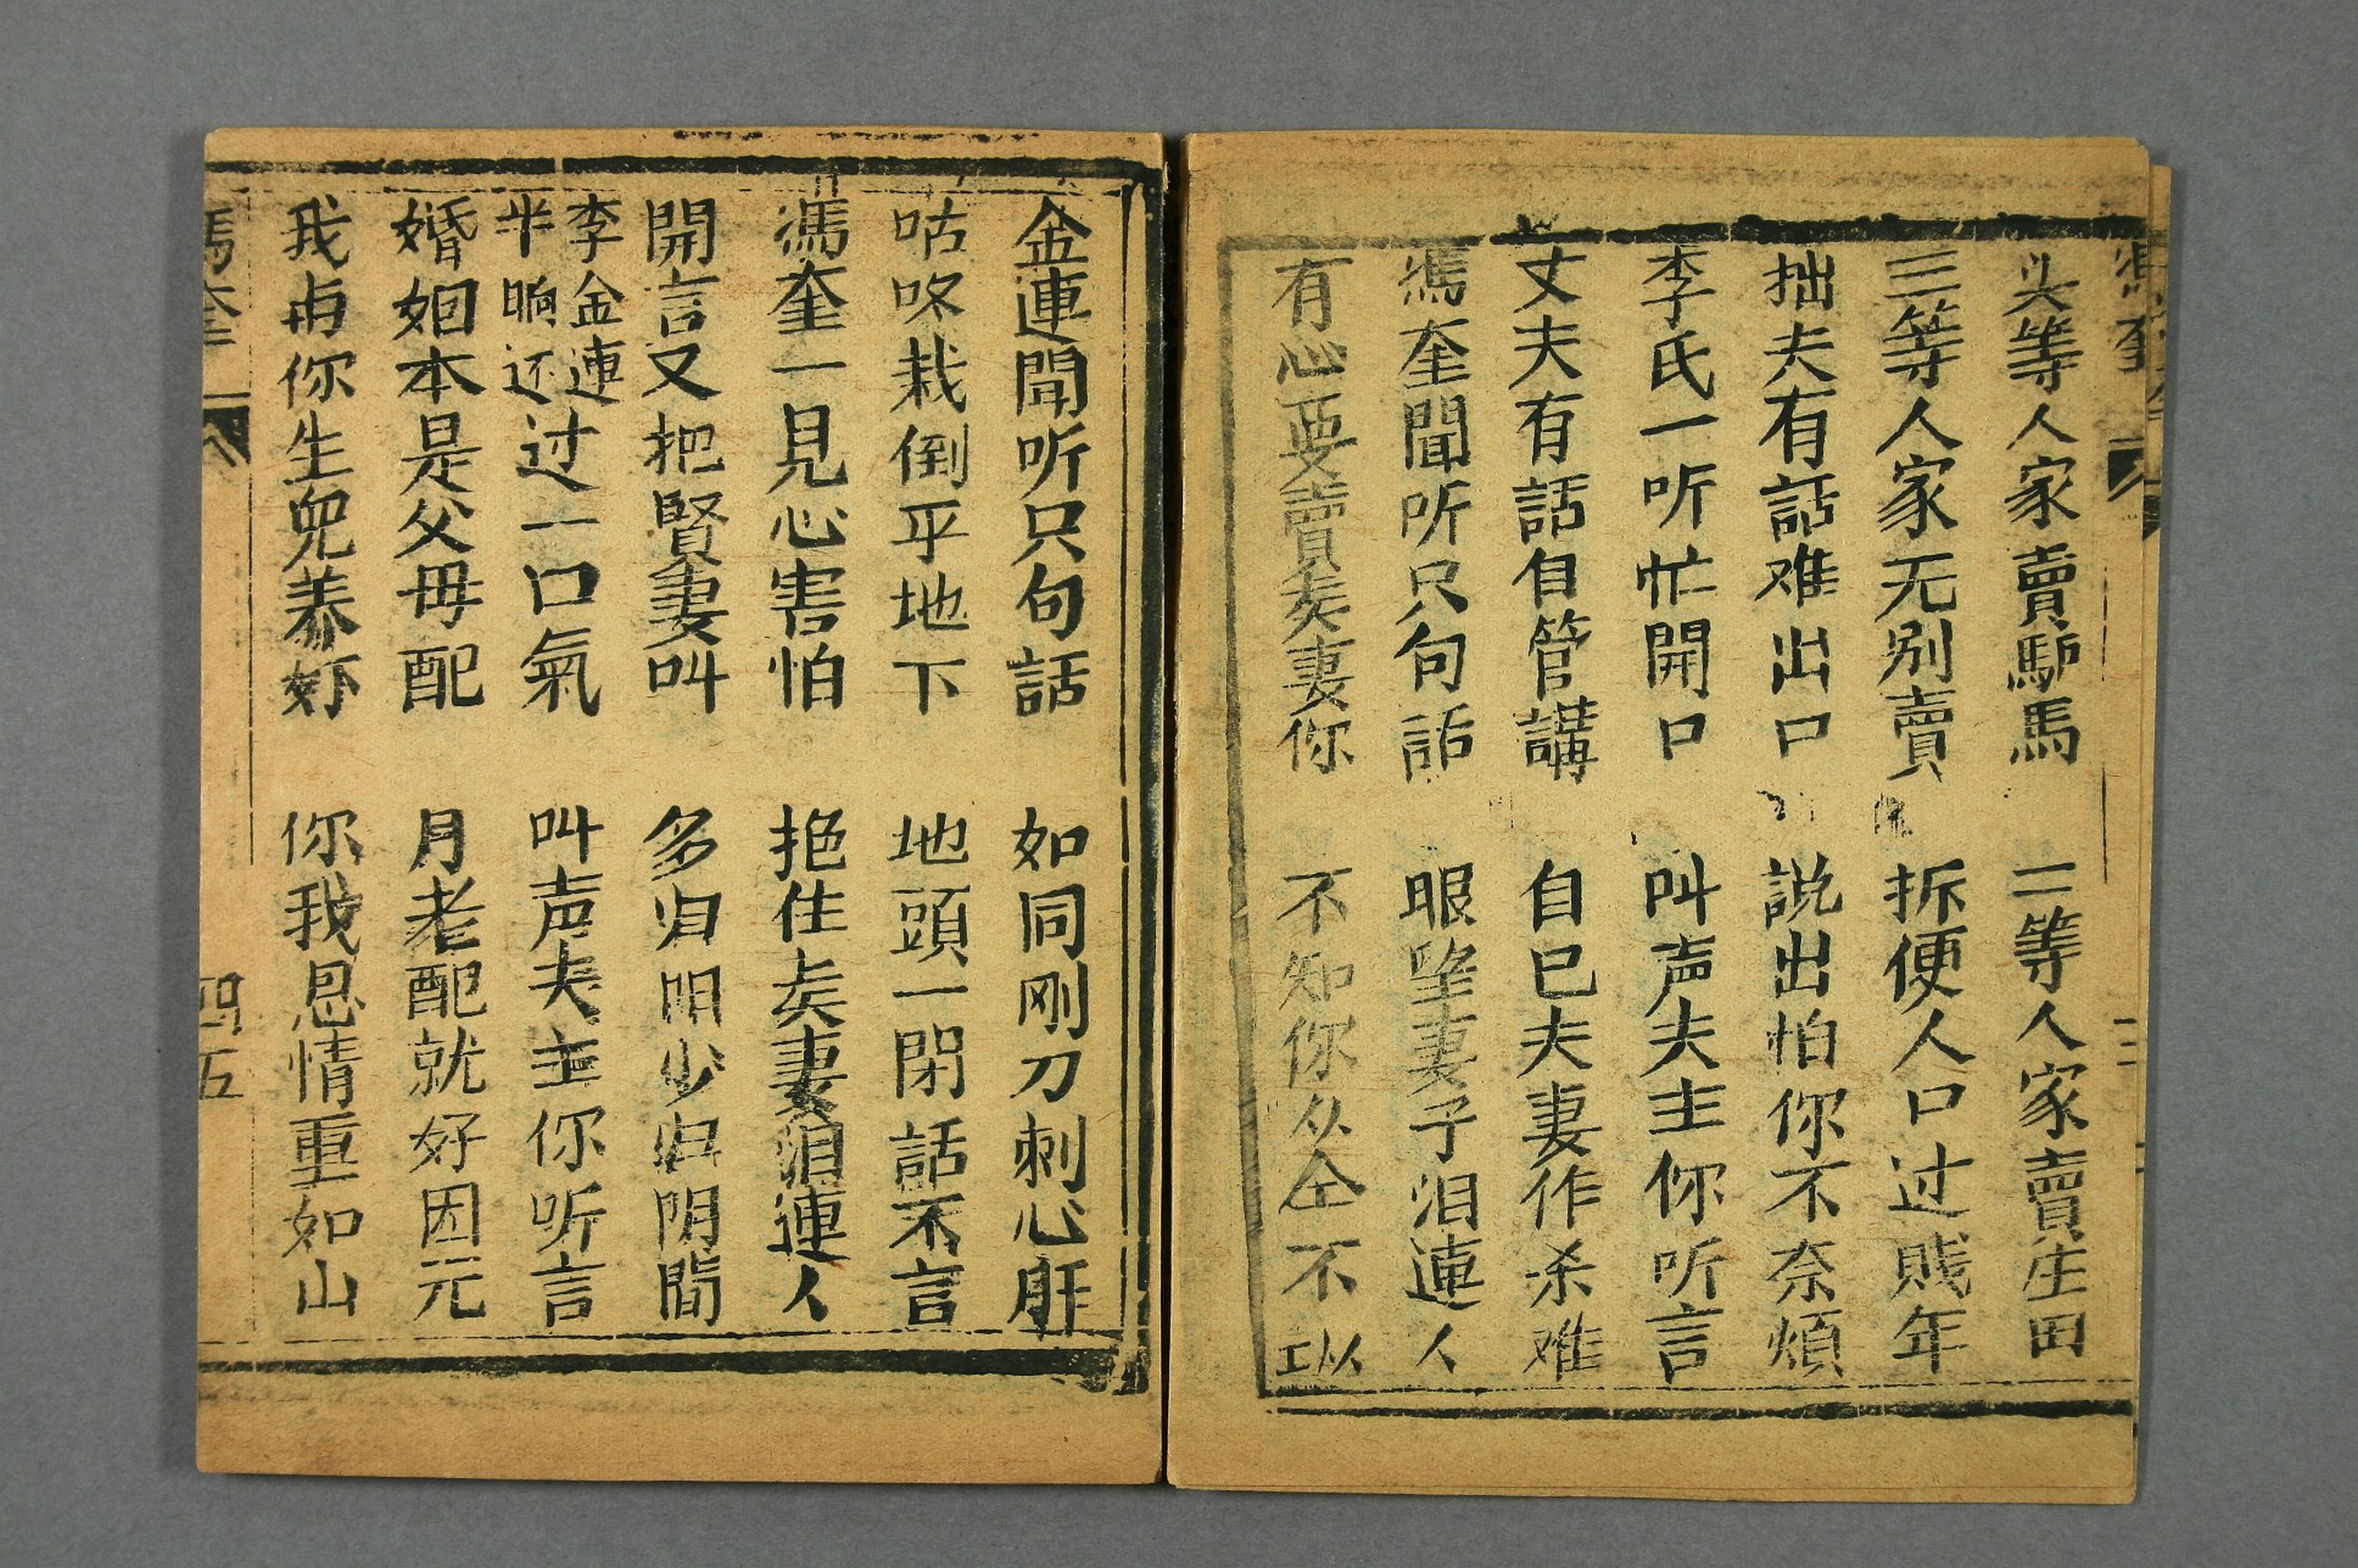 馮奎
二
头等人家賣馿馬 二等人家賣庄田
三等人家无別賣 拆便人口过賤年
拙夫有話难出口 説出怕你不奈煩
李氏一听忙開口 叫声夫主你听言
丈夫有話自管講 自己夫妻作杀难
馮奎聞听只句話 眼望妻子泪連人
有心要賣矣妻你 不知你从全不从
金連聞听只句話 如同刚刀刺心肝
咕咚栽倒乎地下 地頭一閉話不言
馮奎一見心害怕 抱住矣妻泪連人
開言又把賢妻叫 多归阳少归阴間
李金連半晌还过一口氣 叫声夫主你听言
婚姻本是父母配 月老配就好因元
我与你生兒养奵 你我恩情重如山
馮奎
四五